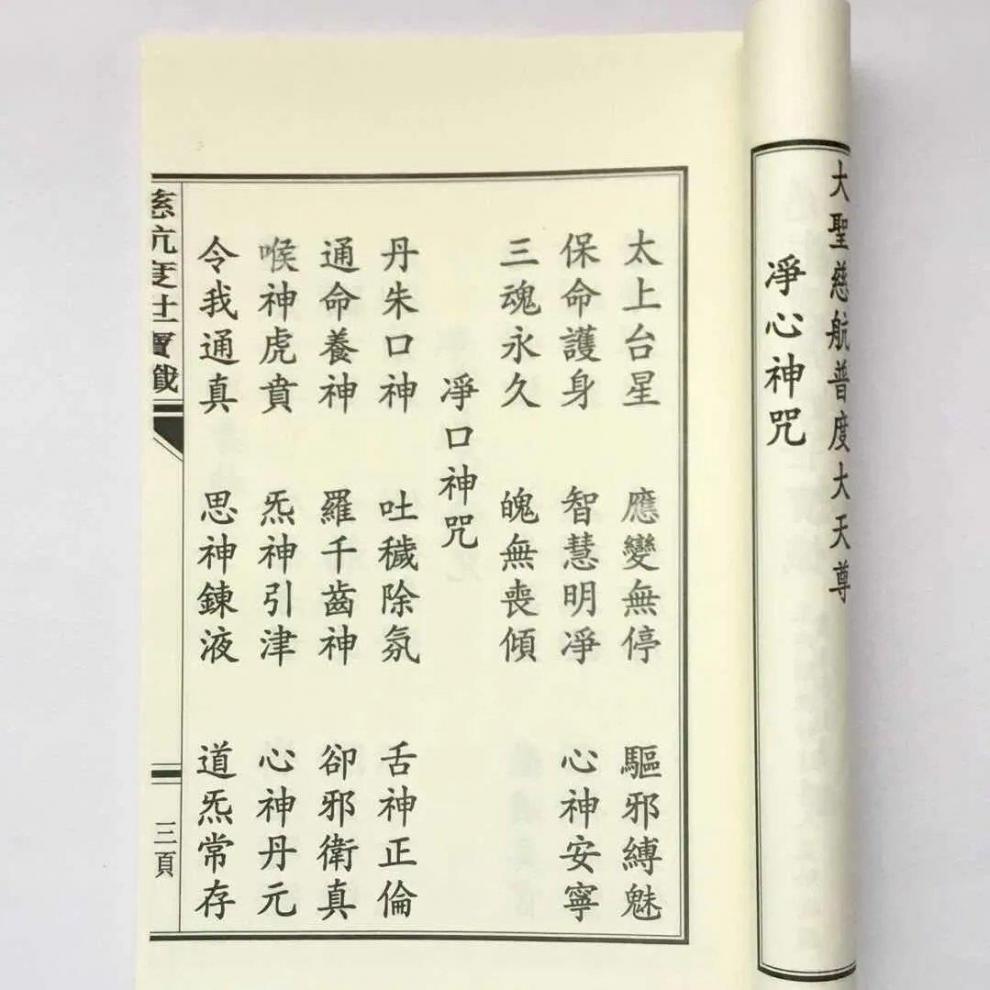 大聖慈航普度大天尊
凈心神咒
太上台星 應變無停 驅邪縛魅
保命護身 智慧明凈 心神安寧
三魂永久 魄無喪傾
凈口神咒
丹朱口神 吐穢除氛 舌神正倫
通命養神 羅千齒神 卻邪衛真
喉神虎賁 炁神引津 心神丹元
令我通真 思神鍊液 道炁常存
三頁